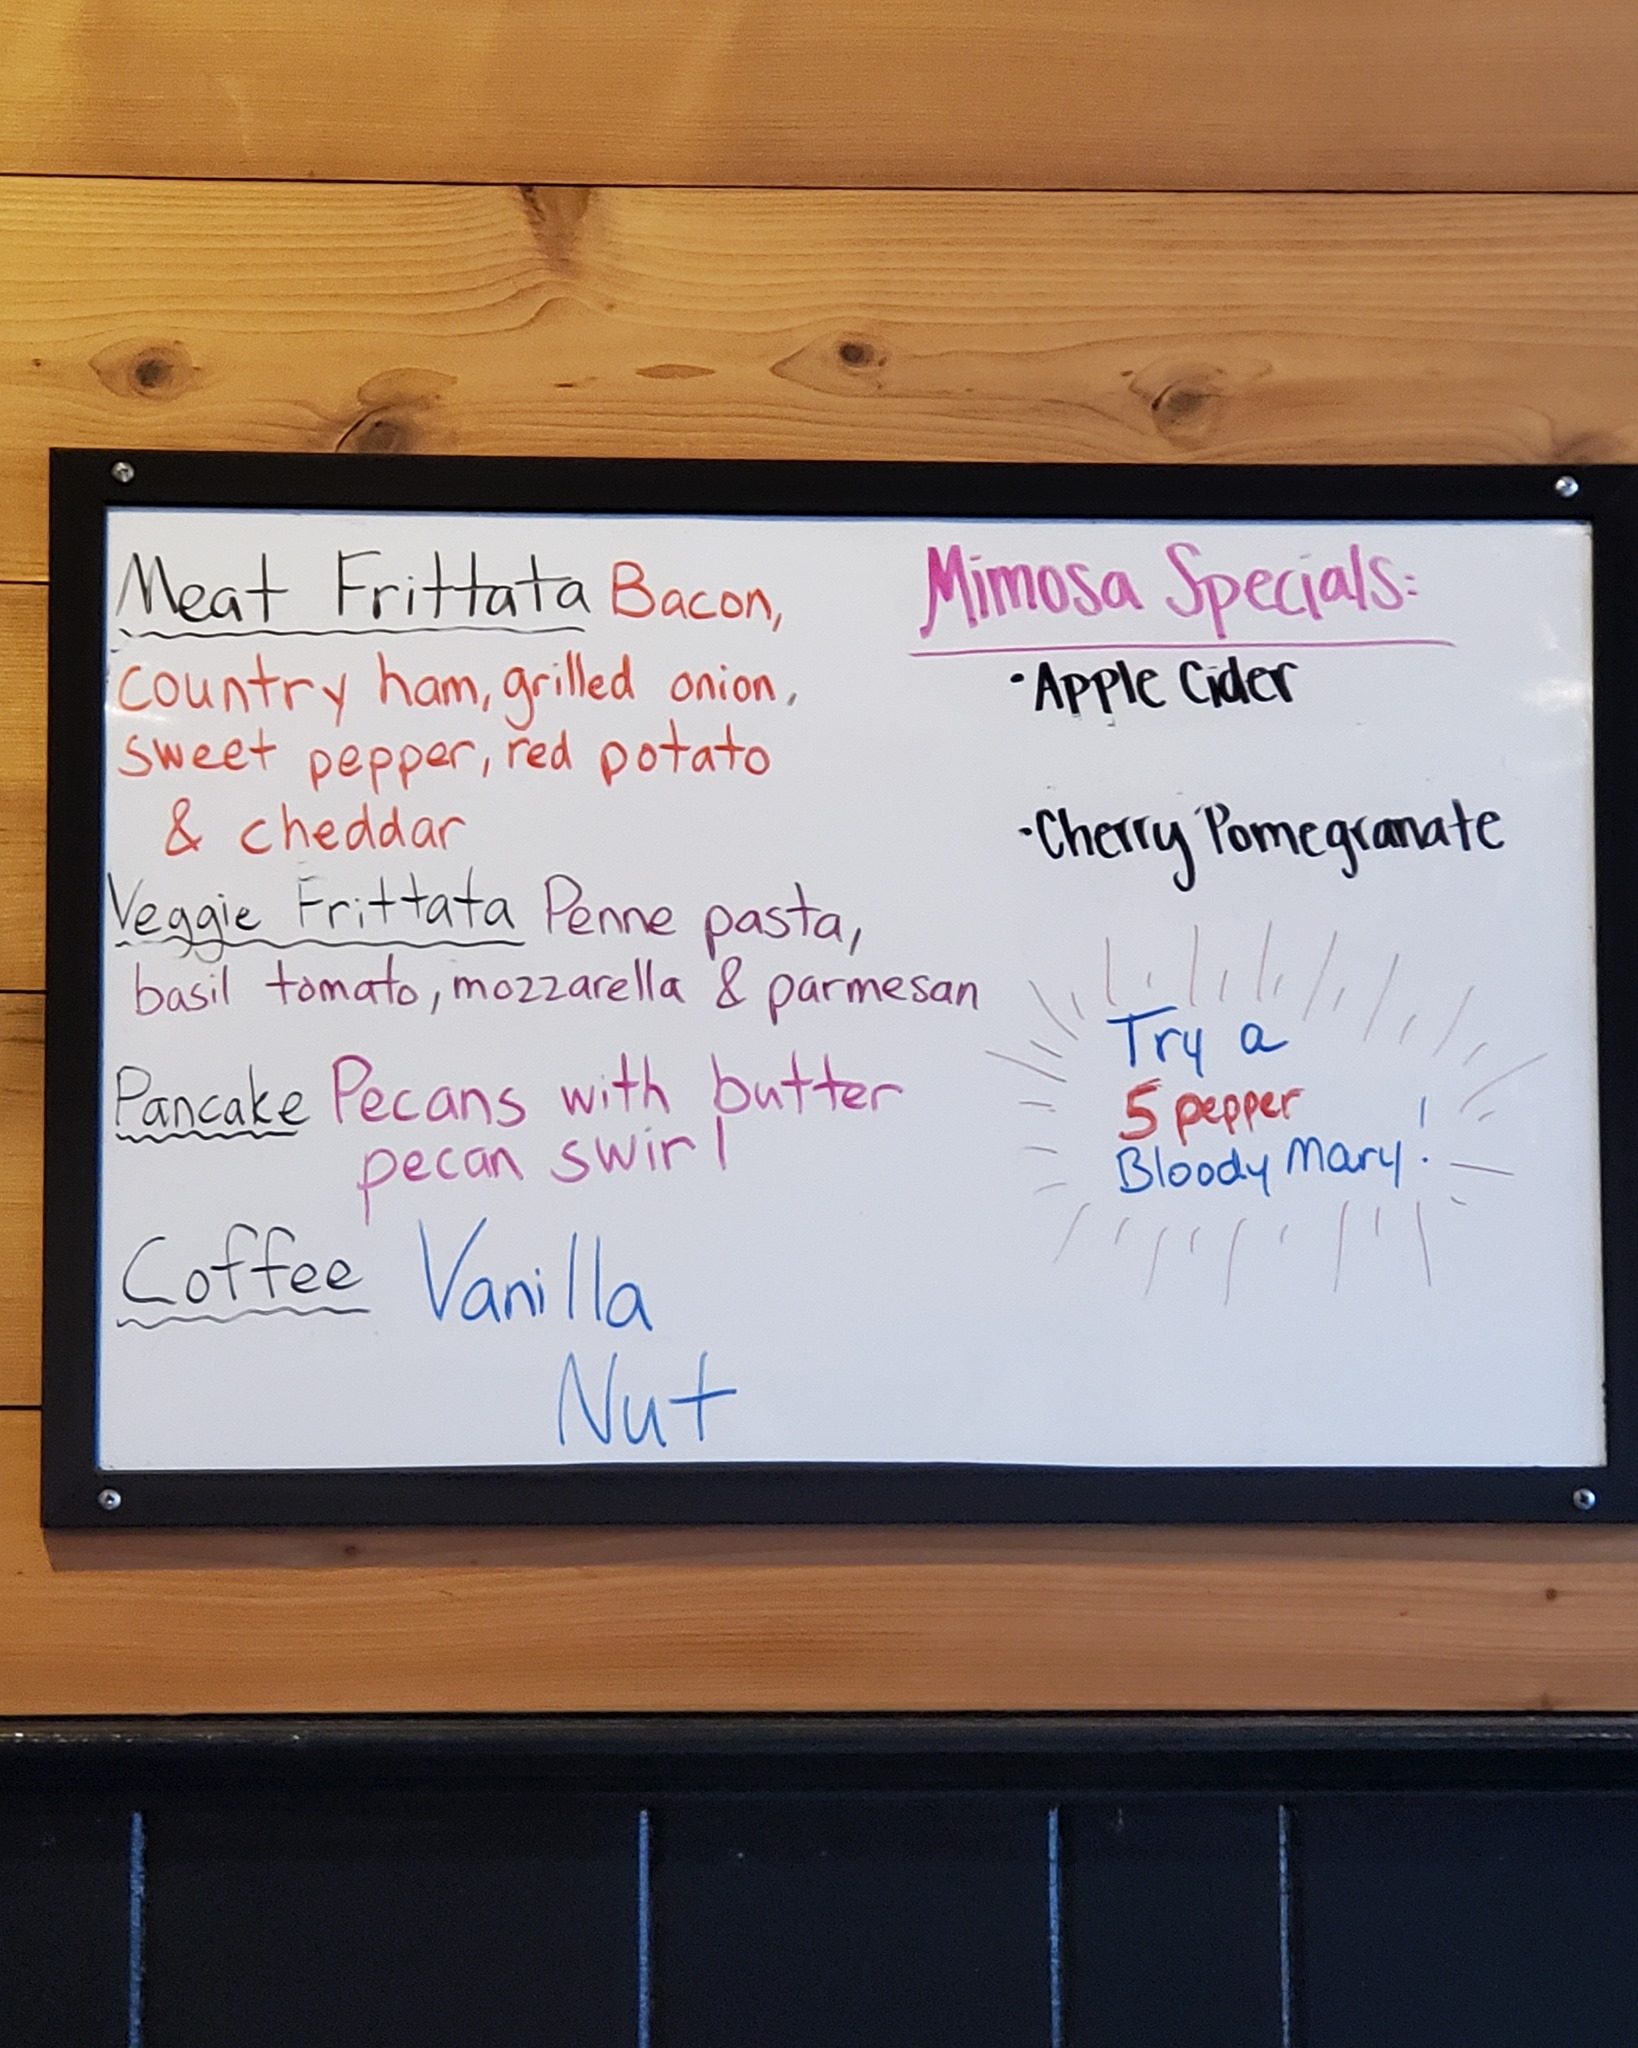 Meat Frittata Bacon,
country ham, grilled onion,
sweet pepper, red potato
& cheddar
Veggie Frittata Penne pasta,
basil tomato, mozzarella & parmesan
Pancake Pecans with butter
pecan swirl
Coffee Vanilla
Nut
Mimosa Specials:
·Apple Cider
·Cherry Pomegranate
Try a
5 pepper
Bloody Mary!